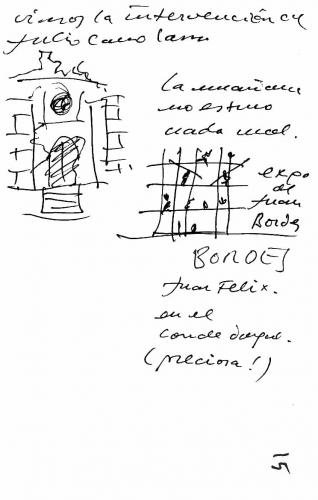 vimos la intervención en
Julio Cano Lasso
La mañana
no estuvo
nada mal.
expo
de
Juan
Bordes
BORDES
Juan Felix.
en el
conde duque.
(preciosa!)
15